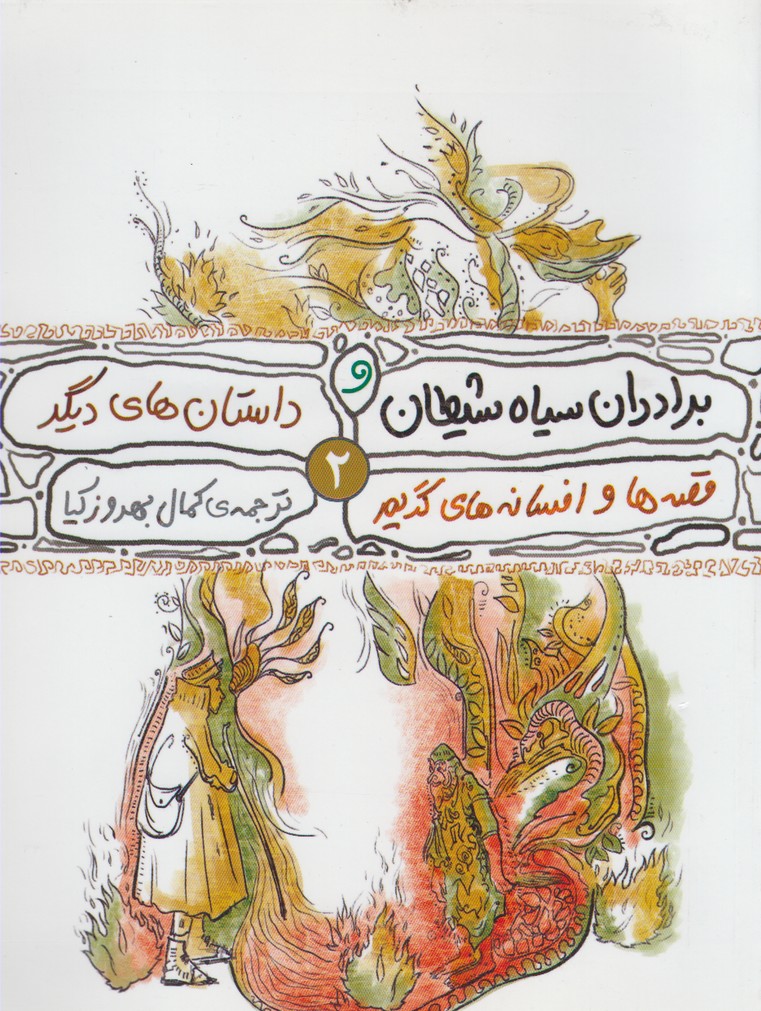 برادران سیاه شیطان و داستان های دیگر
۲
قصه ها و افسانه های گریم
ترجمه‌ی کمال بهروزکیا